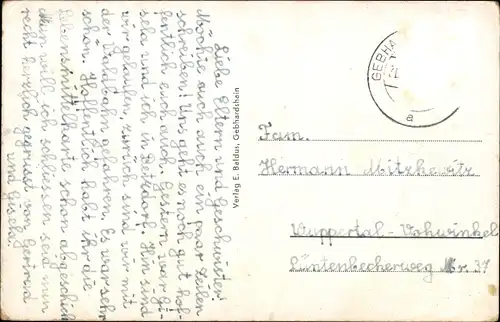 Liebe Eltern und Geschwister!
Möchte euch auch ein paar Zeilen
schreiben! Uns geht es noch gut hof-
fentlich euch auch. Gestern war Gi-
sela und ich in Hin sind
wir gelaufen, zurück sind wir mit
der Waldbahn gefahren. Es war sehr
schön. Hoffentlich habt ihr die
Lebensmittelkarte schon abgeschickt
Nun will ich schliessen seid nun
recht herzlich gegrüsst von Gertrud
und Gisela.
Verlag E. Beldus, Gebhardshain
GEBHA
a
Fam.
Hermann Mitzkewitz
Wuppertal-Vohwinkel
Lüntenbecherweg Nr. 37